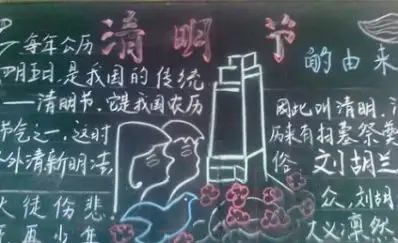 清明节的由来
每年公历
四月五日,是我国的传统
——清明节,它是我国农历
节气之一,这时
外清新明洁,
因此叫清明,
历来有扫墓祭奠
俗,
大徒伤悲
刘胡兰
众,刘胡
大义凛然